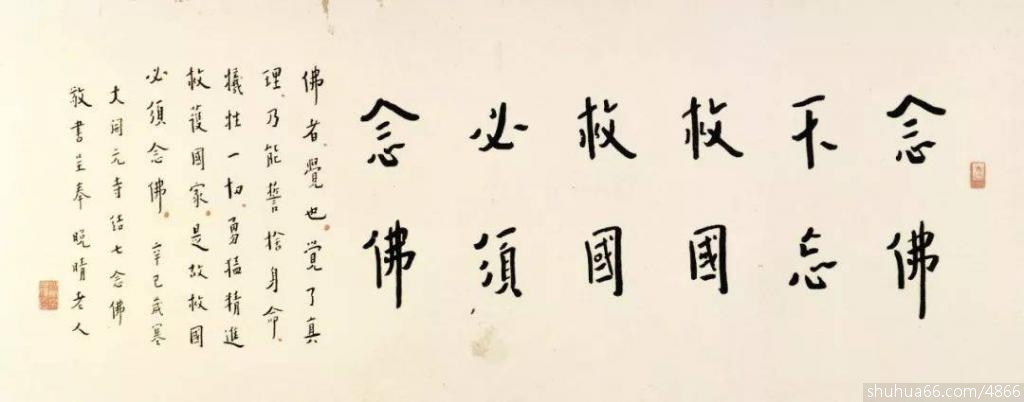 念佛
不忘
救國
救國
必須
念佛
佛者覺也覺了真
理乃能誓捨身命
犧牲一切勇猛精進
救護國家是故救國
必須念佛 辛巳歲寒
大開元寺結七念佛
敬書呈奉晚晴老人
shuhua66.com/4866